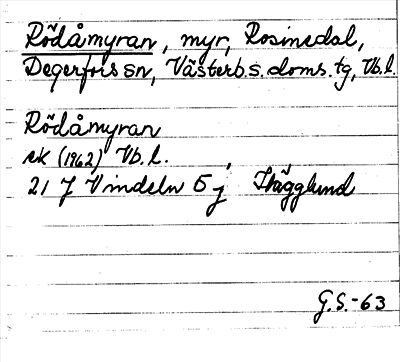 Rödåmyran, myr, Rosinedal,
Degerfors sn, Västerb.s. doms. tg, Vb.l.
Rödåmyran
ek (1962) Vb.l.
21 J Vindeln 5 j THägglund
G.S.-63